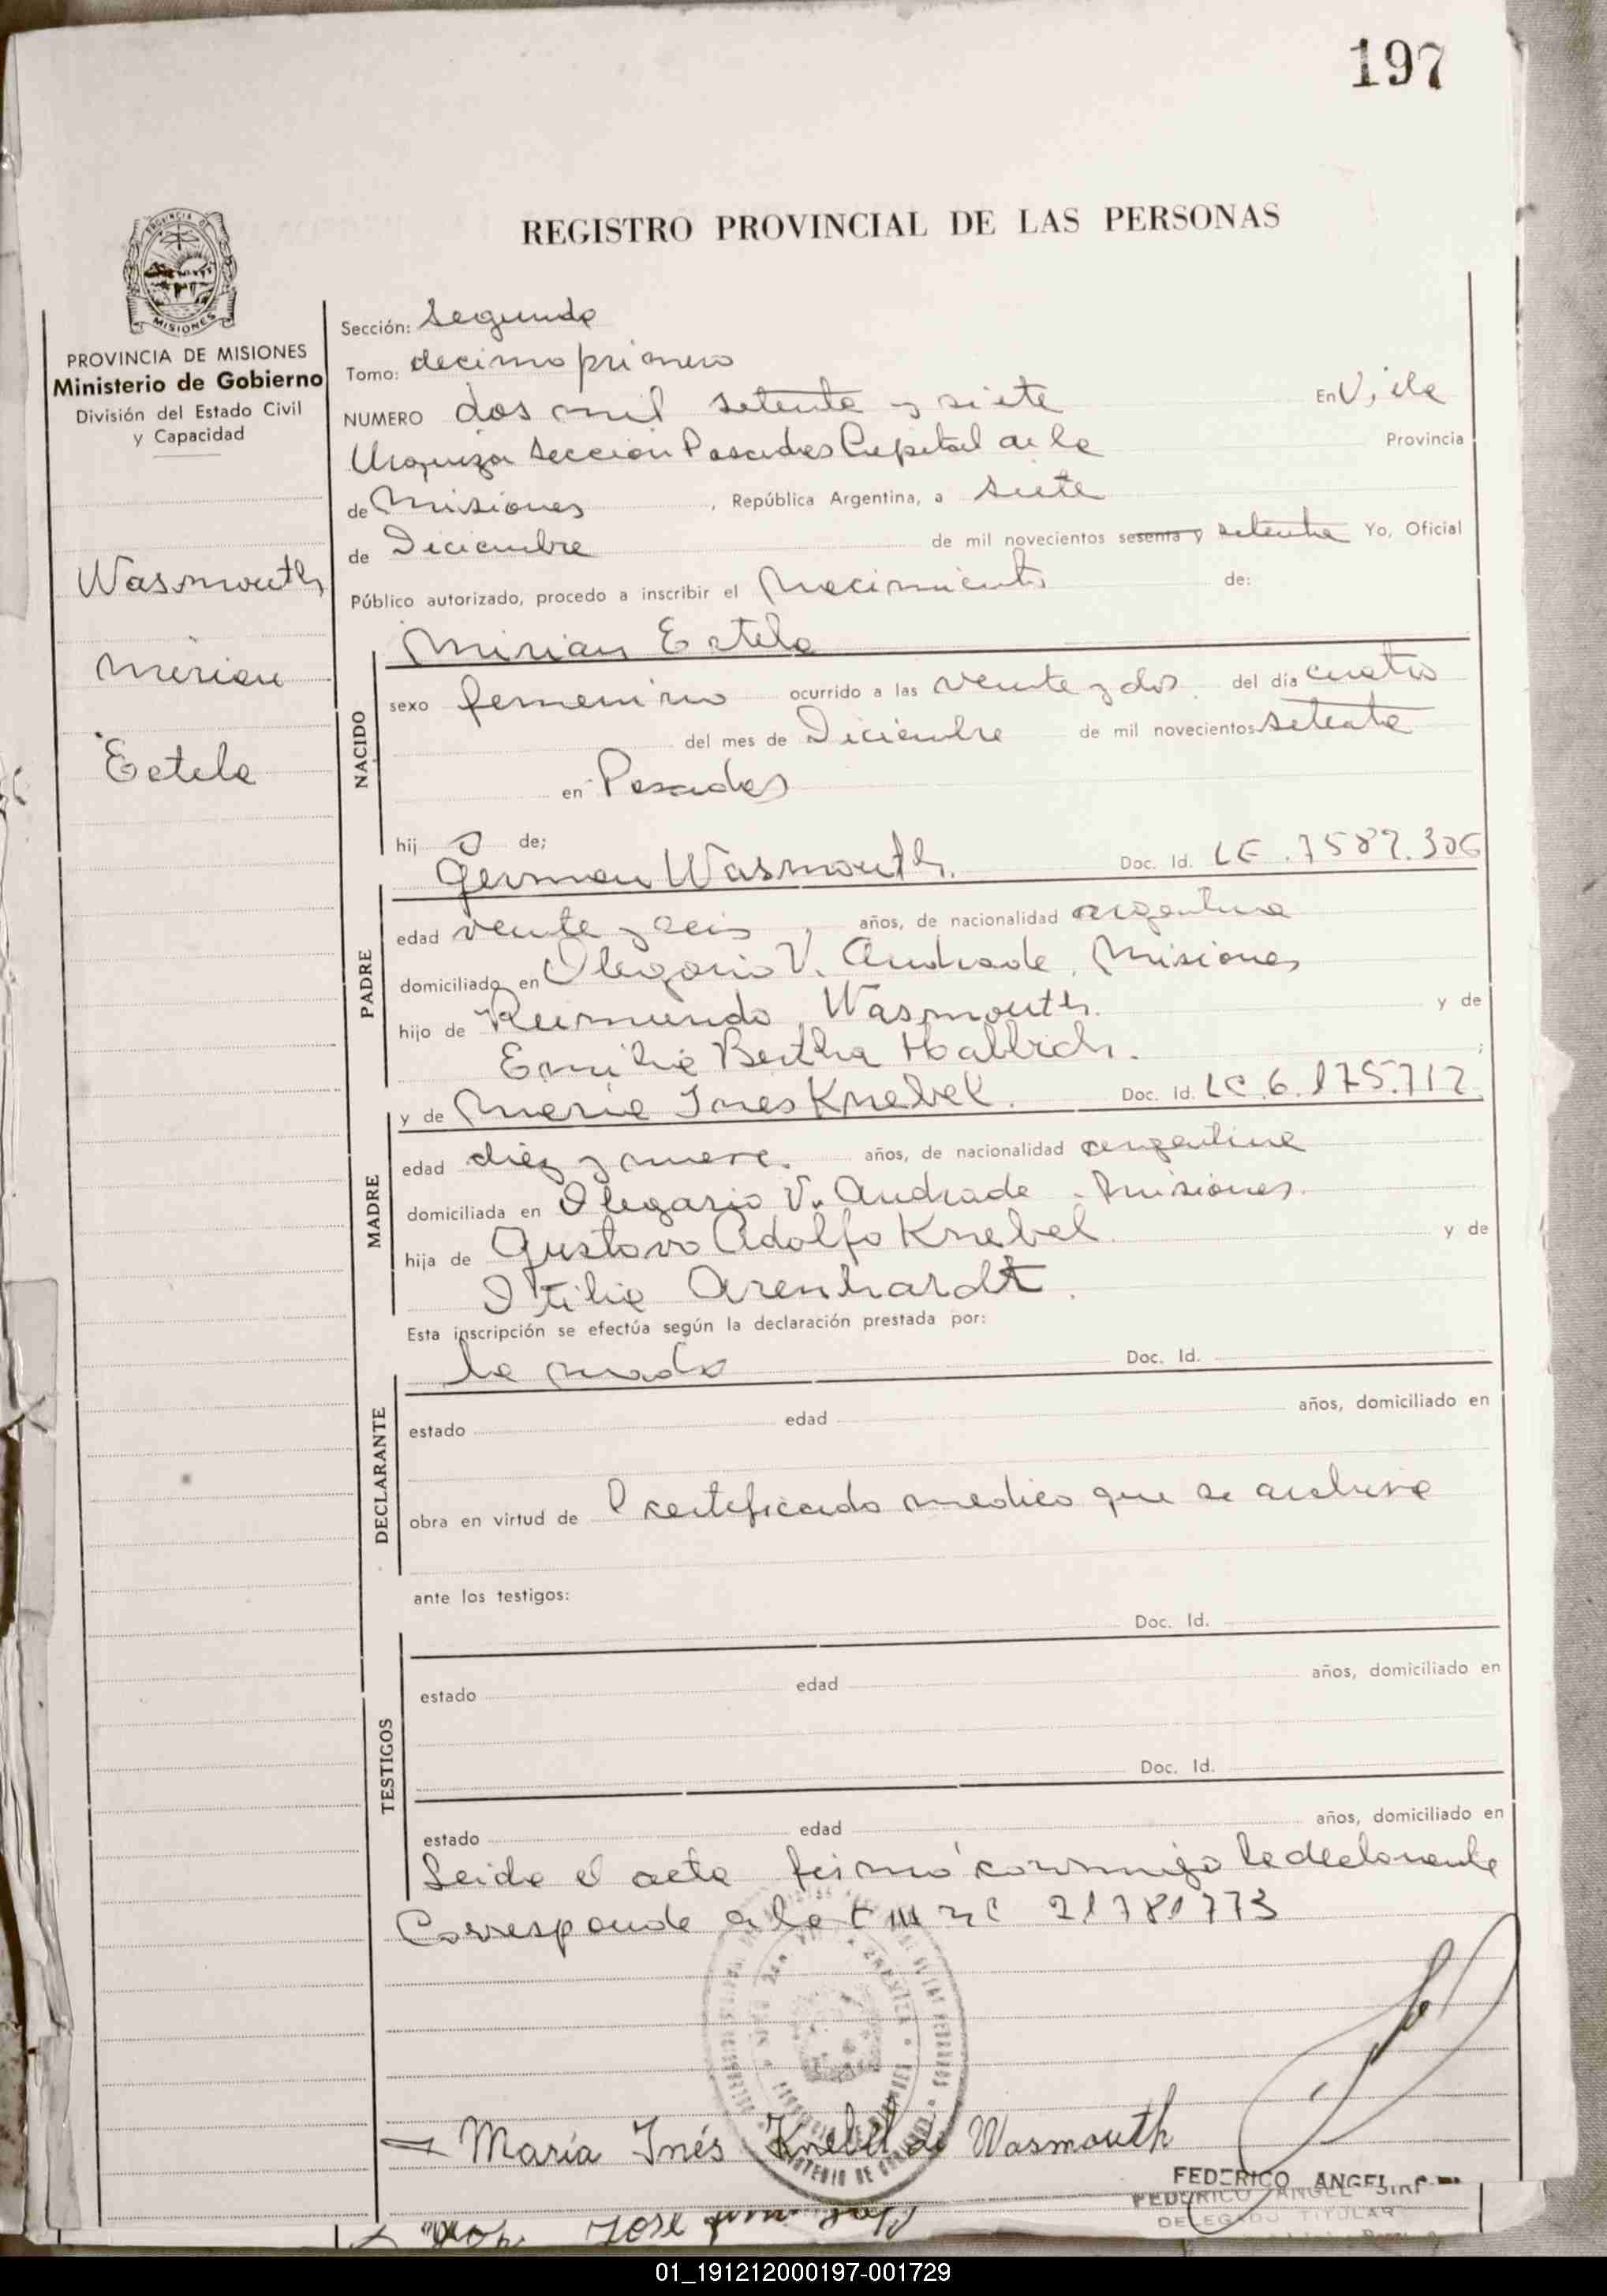 197
REGISTRO PROVINCIAL DE LAS PERSONAS
MISIONES
PROVINCIA DE MISIONES
Ministerio de Gobierno
División del Estado Civil
y Capacidad
Wasmouth
Mirian
Estela
Sección: Segunda
Tomo: decimo primero
NUMERO dos mil setenta y siete En Villa
Urquiza Sección Posadas Capital de la Provincia
de Misiones, República Argentina, a siete
de Diciembre de mil novecientos sesenta y setenta Yo, Oficial
Público autorizado, procedo a inscribir el Nacimiento de:
NACIDO
Mirian Estela
sexo femenino ocurrido a las veinte y dos del día cuatro
del mes de Diciembre de mil novecientos setenta
en Posadas
hij a de;
PADRE
German Wasmouth. Doc. Id. LE .7587.306
edad veinte y seis, años, de nacionalidad argentina
domiciliado en Olegario V. Andrade, Misiones
hijo de Reimundo Wasmouth. y de
Emilia Bertha Hallich. ;
MADRE
y de Maria Ines Knebel. Doc. Id. LC.6.175.712.
edad diez y nueve. años, de nacionalidad argentina
domiciliada en Olegario V. Andrade - Misiones.
hija de Gustavo Adolfo Knebel y de
Otilia Arenhardt.
Esta inscripción se efectúa según la declaración prestada por:
DECLARANTE
la madre Doc. Id.
estado edad años, domiciliado en
obra en virtud de certificado medico que se archiva
ante los testigos:
TESTIGOS
Doc. Id.
estado edad años, domiciliado en
Doc. Id.
estado edad años, domiciliado en
Leida el acta firmó conmigo la declarante
Corresponde a la 21781773
María Inés Knebel de Wasmouth
FEDERICO ANGEL
FEDERICO ANGEL
DELEGADO TITULAR
01_191212000197-001729